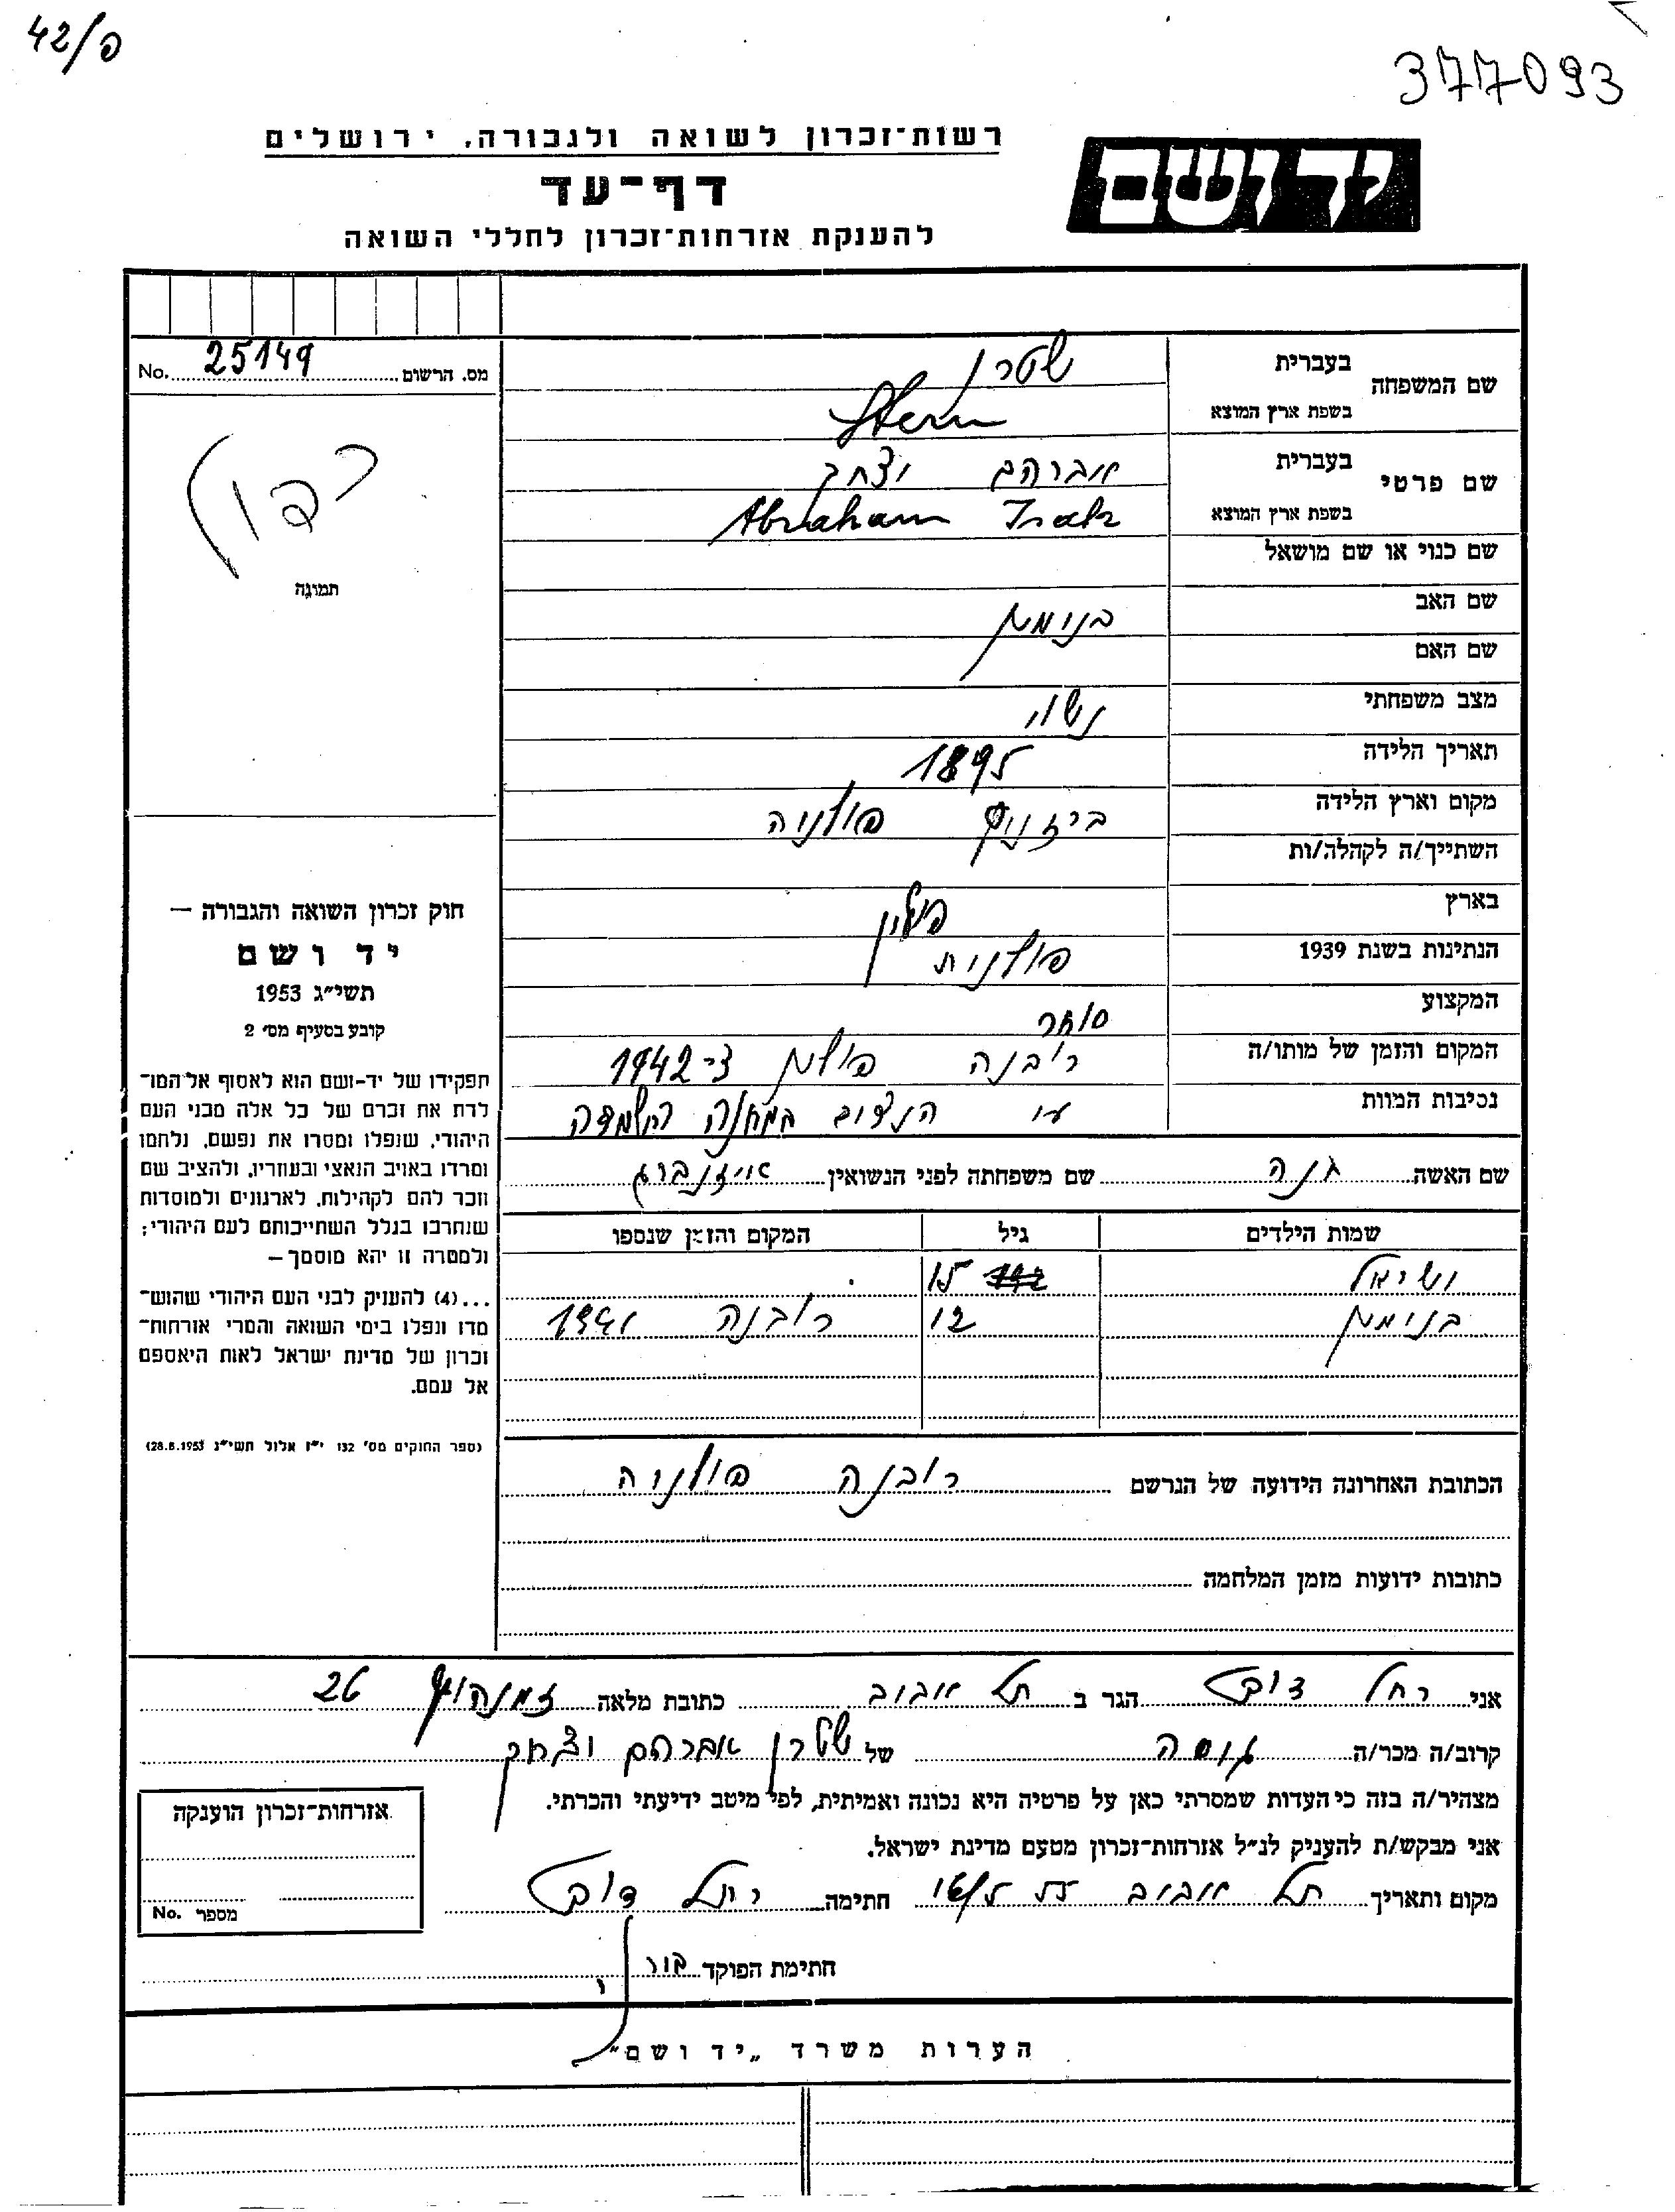 42/פ
377093
רשות־זכרון לשואה ולגבורה, ירושלים
יד ושם
דף־עד
להענקת אזרחות־זכרון לחללי השואה
מס. הרשום 25149 No.
תמונה
שם המשפחה
בעברית שטרן
בשפת ארץ המוצא Stern
שם פרטי
בעברית אברהם יצחק
בשפת ארץ המוצא Abraham Izak
שם כנוי או שם מושאל
שם האב בנימין
שם האם
מצב משפחתי נשוי
תאריך הלידה 1895
מקום וארץ הלידה פולניה
השתייך/ה לקהלה/ות
בארץ
הנתינות בשנת 1939 פולנית
המקצוע סוחר
המקום והזמן של מותו/ה רובנה פולין ב־1942
נסיבות המוות במחנה השמדה
שם האשה חנה שם משפחתה לפני הנשואין אייזנברג
שמות הילדים גיל המקום והזמן שנספו
ישראל 15
בנימין 12 רובנה 1941
הכתובת האחרונה הידועה של הנרשם רובנה פולניה
כתובות ידועות מזמן המלחמה
חוק זכרון השואה והגבורה —
יד ושם
תשי״ג 1953
קובע בסעיף מס׳ 2
תפקידו של יד-ושם הוא לאסוף אל המו־
לדת את זכרם של כל אלה מבני העם
היהודי, שנפלו ומסרו את נפשם, נלחמו
ומרדו באויב הנאצי ובעוזריו, ולהציב שם
וזכר להם לקהילות, לארגונים ולמוסדות
שנחרבו בגלל השתייכותם לעם היהודי;
ולמטרה זו יהא מוסמך —
...(4) להעניק לבני העם היהודי שהוש־
מדו ונפלו בימי השואה והמרי אזרחות־
זכרון של מדינת ישראל לאות היאספם
אל עמם.
(ספר החוקים מס׳ 132 י״ז אלול תשי״ג 28.8.1953)
אני רחל הגר ב תל אביב כתובת מלאה זמנהוף 26
קרוב/ה מכר/ה גיסה של שטרן אברהם יצחק
מצהיר/ה בזה כי העדות שמסרתי כאן על פרטיה היא נכונה ואמיתית, לפי מיטב ידיעתי והכרתי.
אני מבקש/ת להעניק לנ״ל אזרחות־זכרון מטעם מדינת ישראל.
מקום ותאריך תל אביב חתימה רחל
חתימת הפוקד
אזרחות־זכרון הוענקה
מספר No.
הערות משרד „יד ושם״